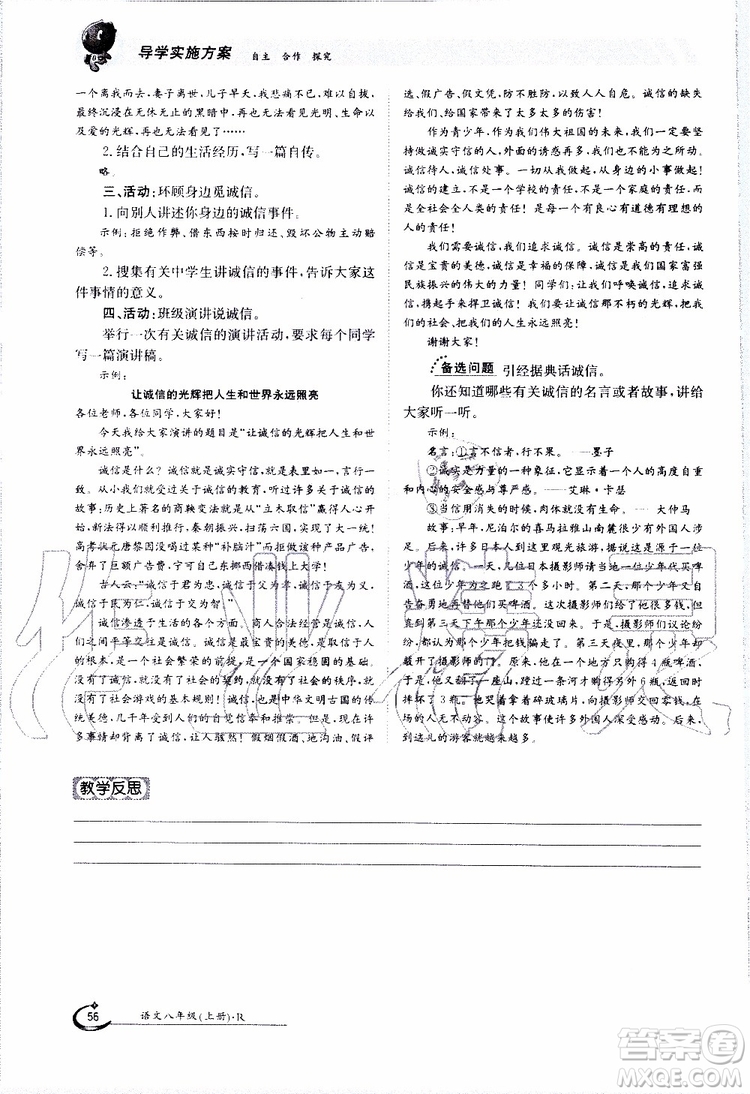 导学实施方案 自主 合作 探究
一个离我而去，妻子离世，儿子早夭，我悲痛不已，难以自拔，
最终沉浸在无休无止的黑暗中，再也无法看见光明、生命以
及爱的光辉了……
2.结合自己的生活经历，写一篇自传。
略。
三、活动：环顾身边觅诚信。
1.向别人讲述你身边的诚信事件。
示例：拒绝作弊、借东西按时归还、毁坏公物主动赔
偿等。
2.搜集有关中学生讲诚信的事件，告诉大家这
件事情的意义。
四、活动：班级演讲说诚信。
举行一次有关诚信的演讲活动，要求每个同学
写一篇演讲稿。
示例：
让诚信的光辉把人生和世界永远照亮
各位老师，各位同学，大家好！
今天我给大家演讲的题目是“让诚信的光辉把人生和世
界永远照亮”。
诚信是什么？诚信就是诚实守信，就是表里如一、言行一
致。从小到大，我们接受过许多关于诚信的教育，听过许多关
于诚信的故事：历史上著名的商鞅变法就是从“立木取信”
开始，诚信为他赢得人心，赢得民众的支持，变法
故事：
举得以顺利推行，秦朝崛起，扫荡六国，实现了大一统！
高考状元唐黎因没喝过某种“补脑汁”而拒绝该种产品广告，
舍弃了巨额广告费，宁可自己东挪西借凑钱上大学！
古人云：“诚信于君为忠，诚信于父为孝，诚信于友为义，
诚信于民为仁，诚信于交为智。”
诚信渗透于生活的方方面面。商人合法经营是诚信，我
们与人之间平等交往是诚信，人与人之间诚信相待。诚信是为人
的根本，是一个社会繁荣的前提，是一个国家稳固的基础。
诚信是没有写进法律的社会的契约，诚信是没有制度规定
的社会游戏的基本规则！诚信，是中华文明古国的传
统美德，几千年来为人们所自觉信奉和推崇。但现在，许
多事情却失去了诚信，让人骇然！假烟假酒、地沟油、假评
选、假广告、假文凭，防不胜防，危害巨大。诚信的缺失
给我们、给国家带来了太多太多的伤害！
作为青少年，作为我们伟大祖国的未来，我们要真正成
为一个诚实守信的人，面对纷繁复杂的诱惑而保持本心。
诚信待人，诚信处事。一切从我做起，从身边的小事做起！
诚信的建立，不是一个人的责任，不是一个家庭的责任，而
是全社会全人类的责任！是每一个有良心有道德有理想的
人的责任！
我们向往诚信，我们追求诚信。诚信是崇高的责任！诚
信是宝贵的美德，诚信是幸福的保障，诚信是国家富强民
族振兴的伟大力量！同学们：让我们呼唤诚信，追求诚
信，携起手来捍卫诚信！我们要让诚信那不朽的光辉，把我
们的社会、把我们的人生、把我们的世界永远照亮！
谢谢大家！
备选问题 引经据典话诚信。
你还知道哪些有关诚信的名言或者故事，讲给
大家听一听。
示例：
名言：①言不信者，行不果。——墨子
②诚实是力量的一种象征，它显示着一个人的高度自
重和内心的安全感与尊严感。——艾琳·卡瑟
③当信用消失的时候，肉体就没有生命。——大仲马
故事：早年，尼泊尔的喜马拉雅山南麓很少有外国人涉
足。后来，许多日本人到这里观光旅游，据说这是源于一位
少年的诚信。一天，几位日本摄影师请当地一位少年代买啤
酒，这位少年为之跑了3个多小时。第二天，那个少年又自
告奋勇地再替他们买啤酒。这次摄影师们给了他很多钱，但
直到第三天下午那个少年还没回来。于是，摄影师们议论纷
纷，都认为那个少年把钱骗走了。第三天夜里，那个少年却
敲开了摄影师的门。原来，他在一个地方只购得4瓶啤酒，
于是，他又翻了一座山，趟过一条河才购得另外6瓶，返回时
摔坏了3瓶。他哭着拿着碎玻璃片，向摄影师交回零钱，在
场的人无不动容。这个故事使许多外国人深受感动。后来，
到这儿的游客就越来越多。
教学反思
56 语文八年级(上册)·R
答案圈
MXQE.COM